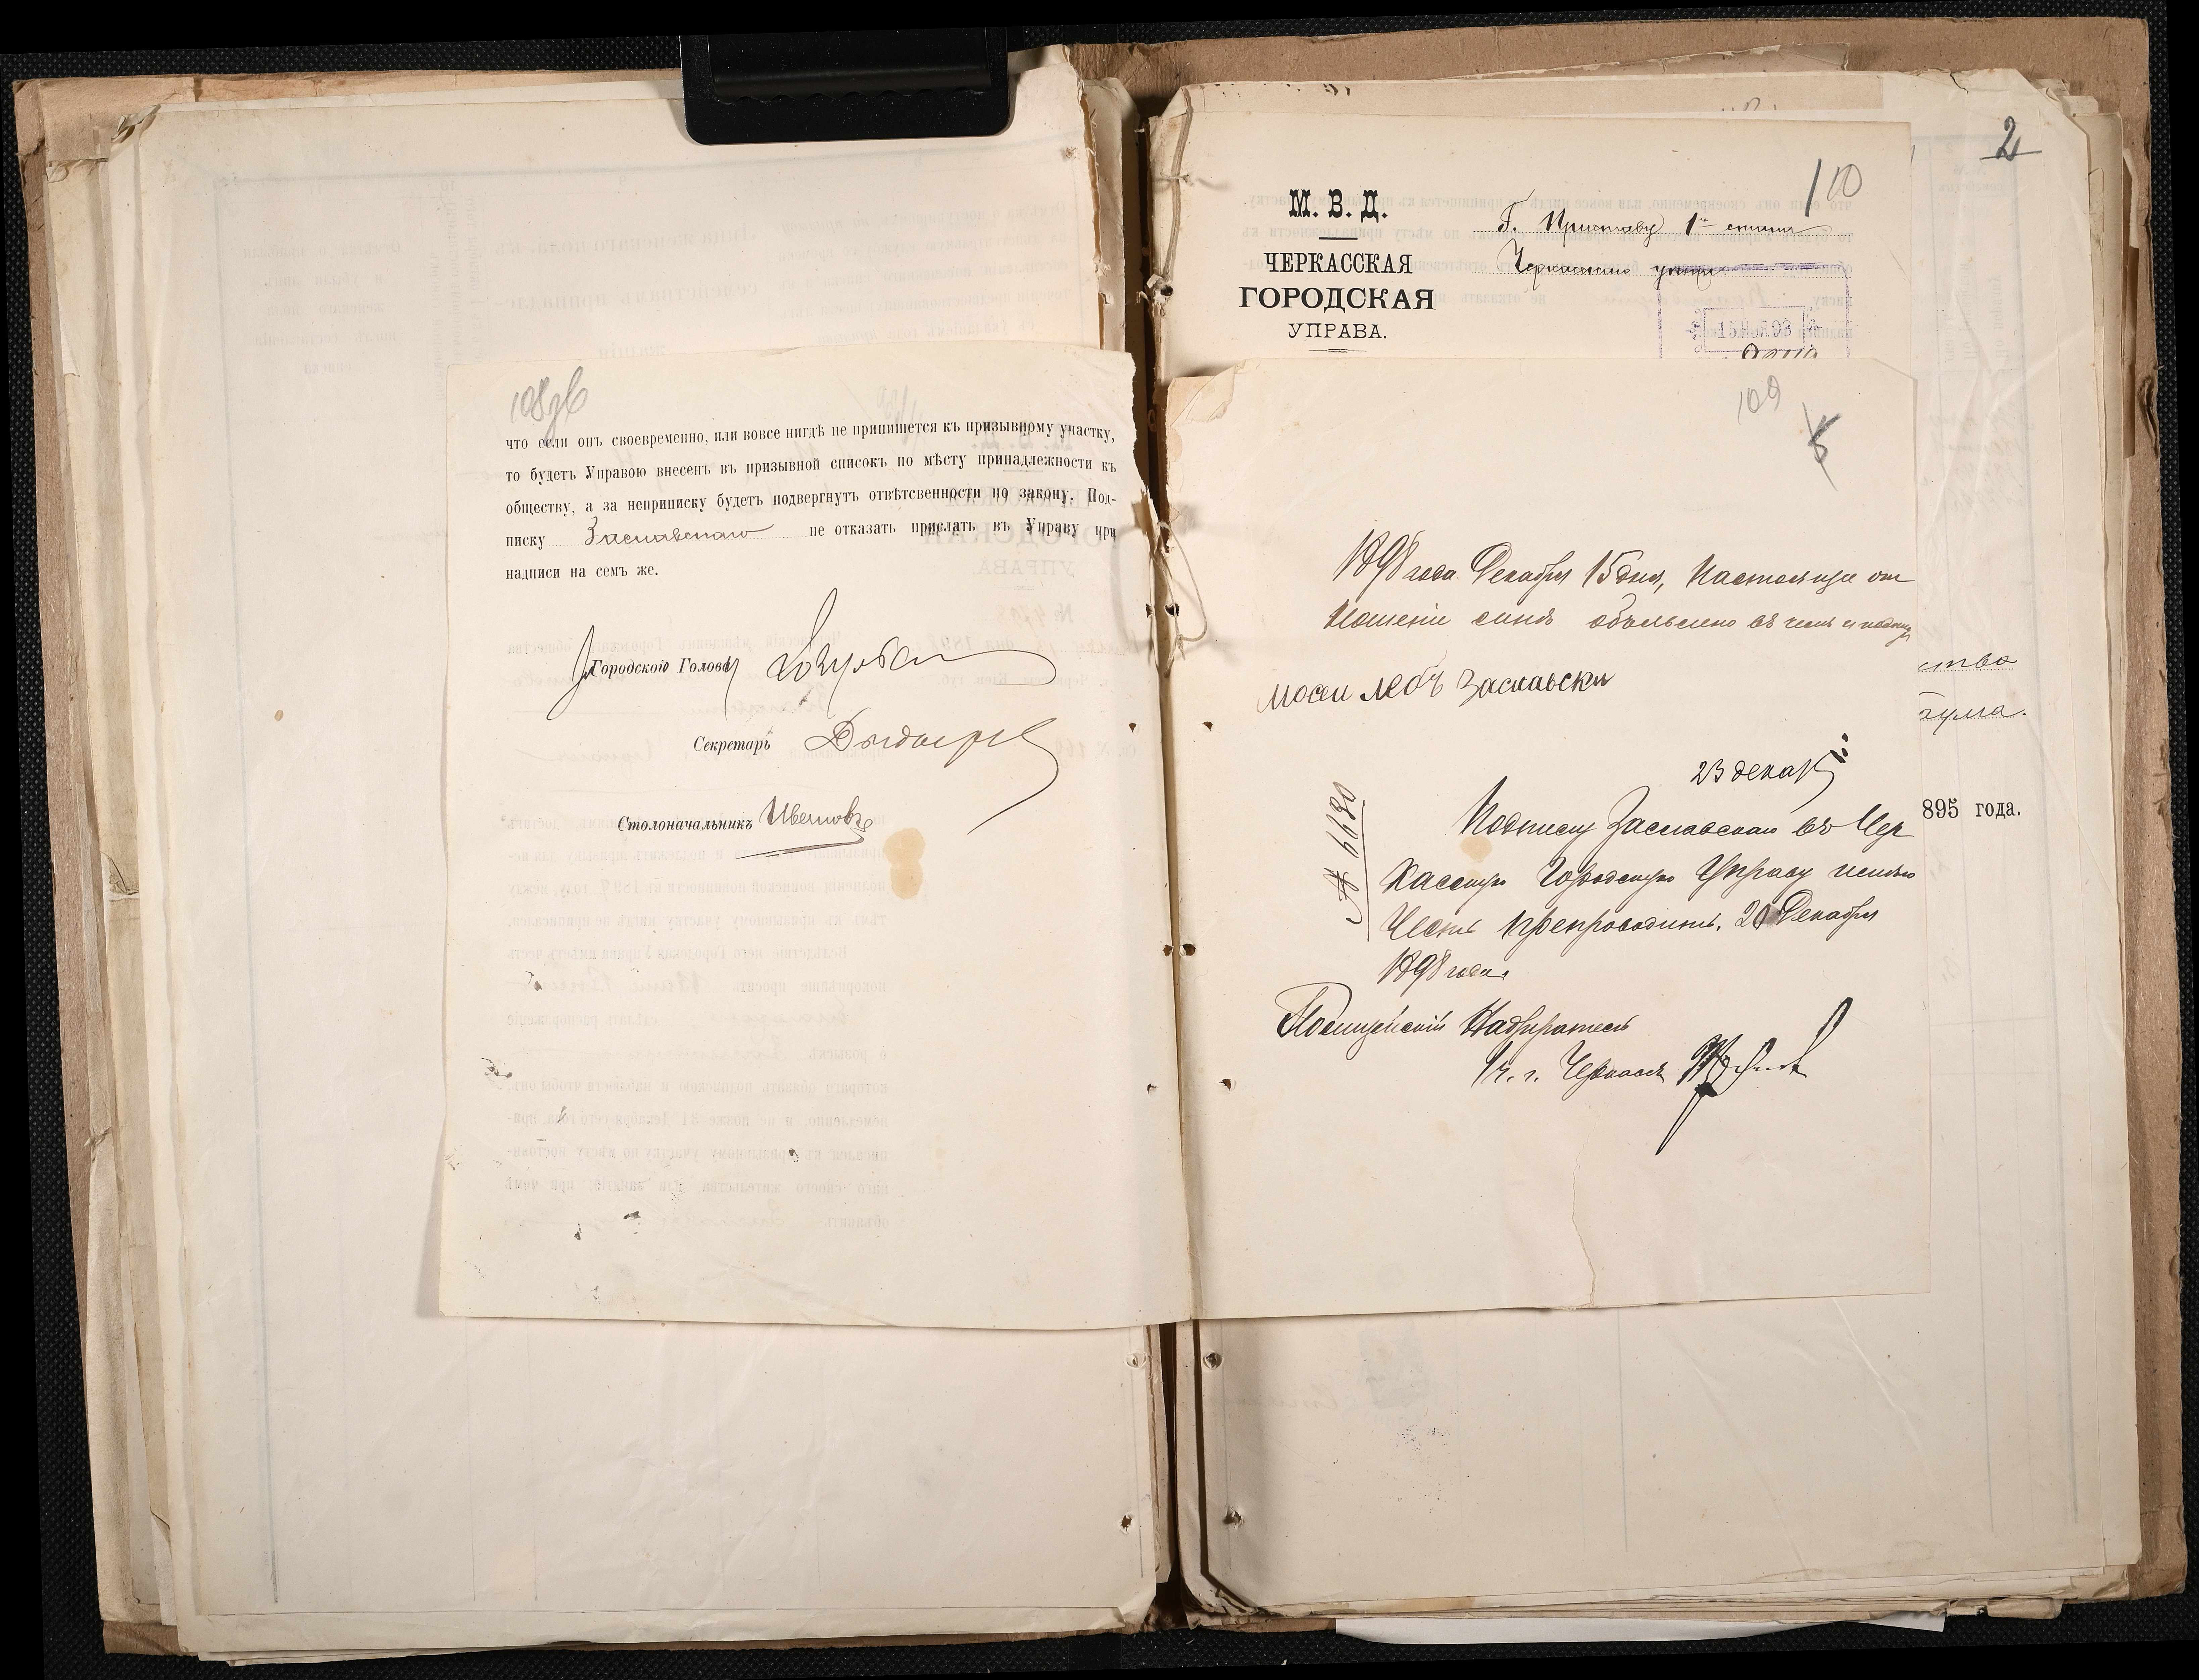 108 об
что если онъ своевременно, или вовсе нигдѣ не припишется къ призывному участку,
то будетъ Управою внесенъ въ призывной списокъ по мѣсту принадлежности къ
обществу, а за неприписку будетъ подвергнутъ отвѣтсвенности по закону. Под-
писку Заславскаго не отказать прислать въ Управу при
надписи на семъ же.
Городской Голова
Секретарь
Столоначальникъ Ивановъ
2
110
М. В. Д.
ЧЕРКАССКАЯ
ГОРОДСКАЯ
УПРАВА.
Г. Приставу 1го стана
Черкасскаго уѣзда
109
5
1898 года Декабря 15 дня, Настоящее от
ношеніе мнѣ объявлено въ чемъ и подпишу
мосеи лебъ заславски
ства
зума.
23 декаб
895 года.
№ 6630
Подписку Заславскаго въ Чер
касскую Городскую Управу имѣю
Честь препроводить. 20 Декабря
1898 года.
Полицейскій Надзиратель
1 ч. г. Черкассъ